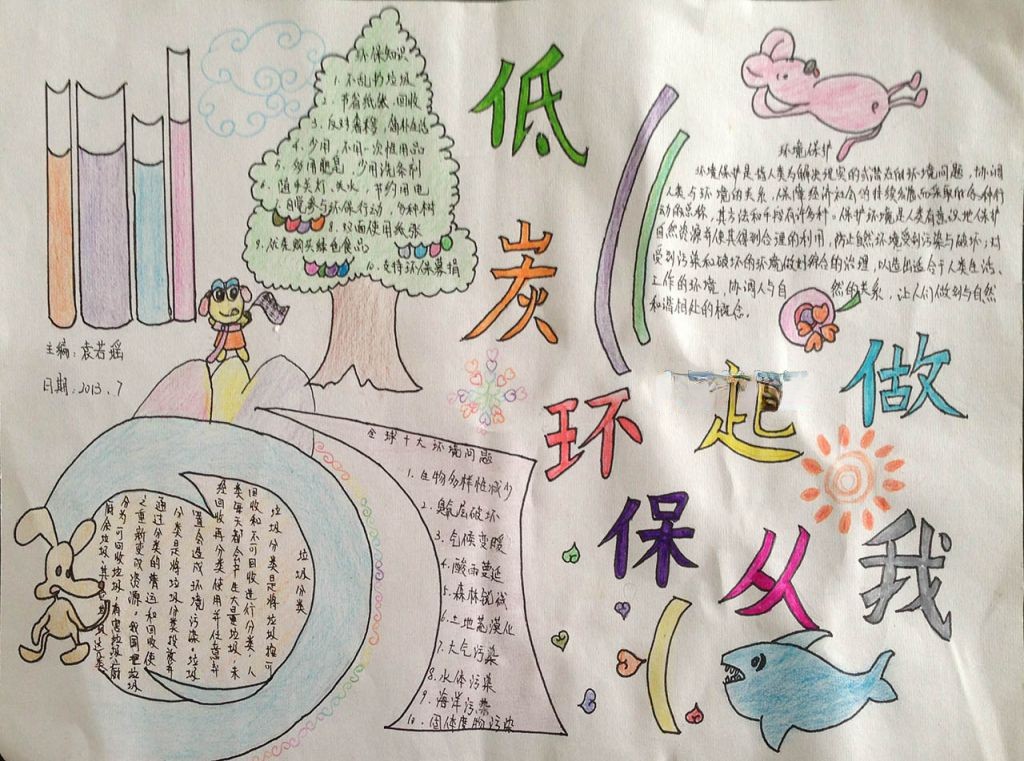 环保知识
1. 不乱扔垃圾
2. 节省纸张、回收
3. 反对
4. 少用、不用一次性用品
5. 多用肥皂，少用洗涤剂
6. 随手关灯、关水，节约用电
7. 自觉参与环保行动，多种树
8. 双面使用纸张
9. 优先购买绿色食品
10. 支持环保募捐
低
碳
环
保
从
我
做
起
环境保护
环境保护是指人类为解决现实的或潜在的环境问题，协调
人类与环境的关系，保障经济社会的持续发展而采取的各种行
动的总称，其方法和手段有许多种。保护环境是人类有意识地保护
自然资源并使其得到合理的利用，防止自然环境受到污染与破坏；对
受到污染和破坏的环境做好综合的治理，以造出适合于人类生活、
工作的环境，协调人与自然的关系，让人们做到与自然
和谐相处的概念。
主编：袁若瑶
日期：2013.7
全球十大环境问题
1. 生物多样性减少
2. 臭氧层破坏
3. 气候变暖
4. 酸雨蔓延
5. 森林锐减
6. 土地荒漠化
7. 大气污染
8. 水体污染
9. 海洋污染
10. 固体废物污染
垃圾分类
垃圾分类是将垃圾按可
回收和不可回收进行分类，人
类每天都会产生大量垃圾，未
经回收再分类使用并任意弃
置会造成环境污染。垃圾
分类是将垃圾分类投放并
通过分类的清运和回收使
之重新变成资源，我国垃圾
分为可回收垃圾，有害垃圾，厨
余垃圾，其它垃圾这